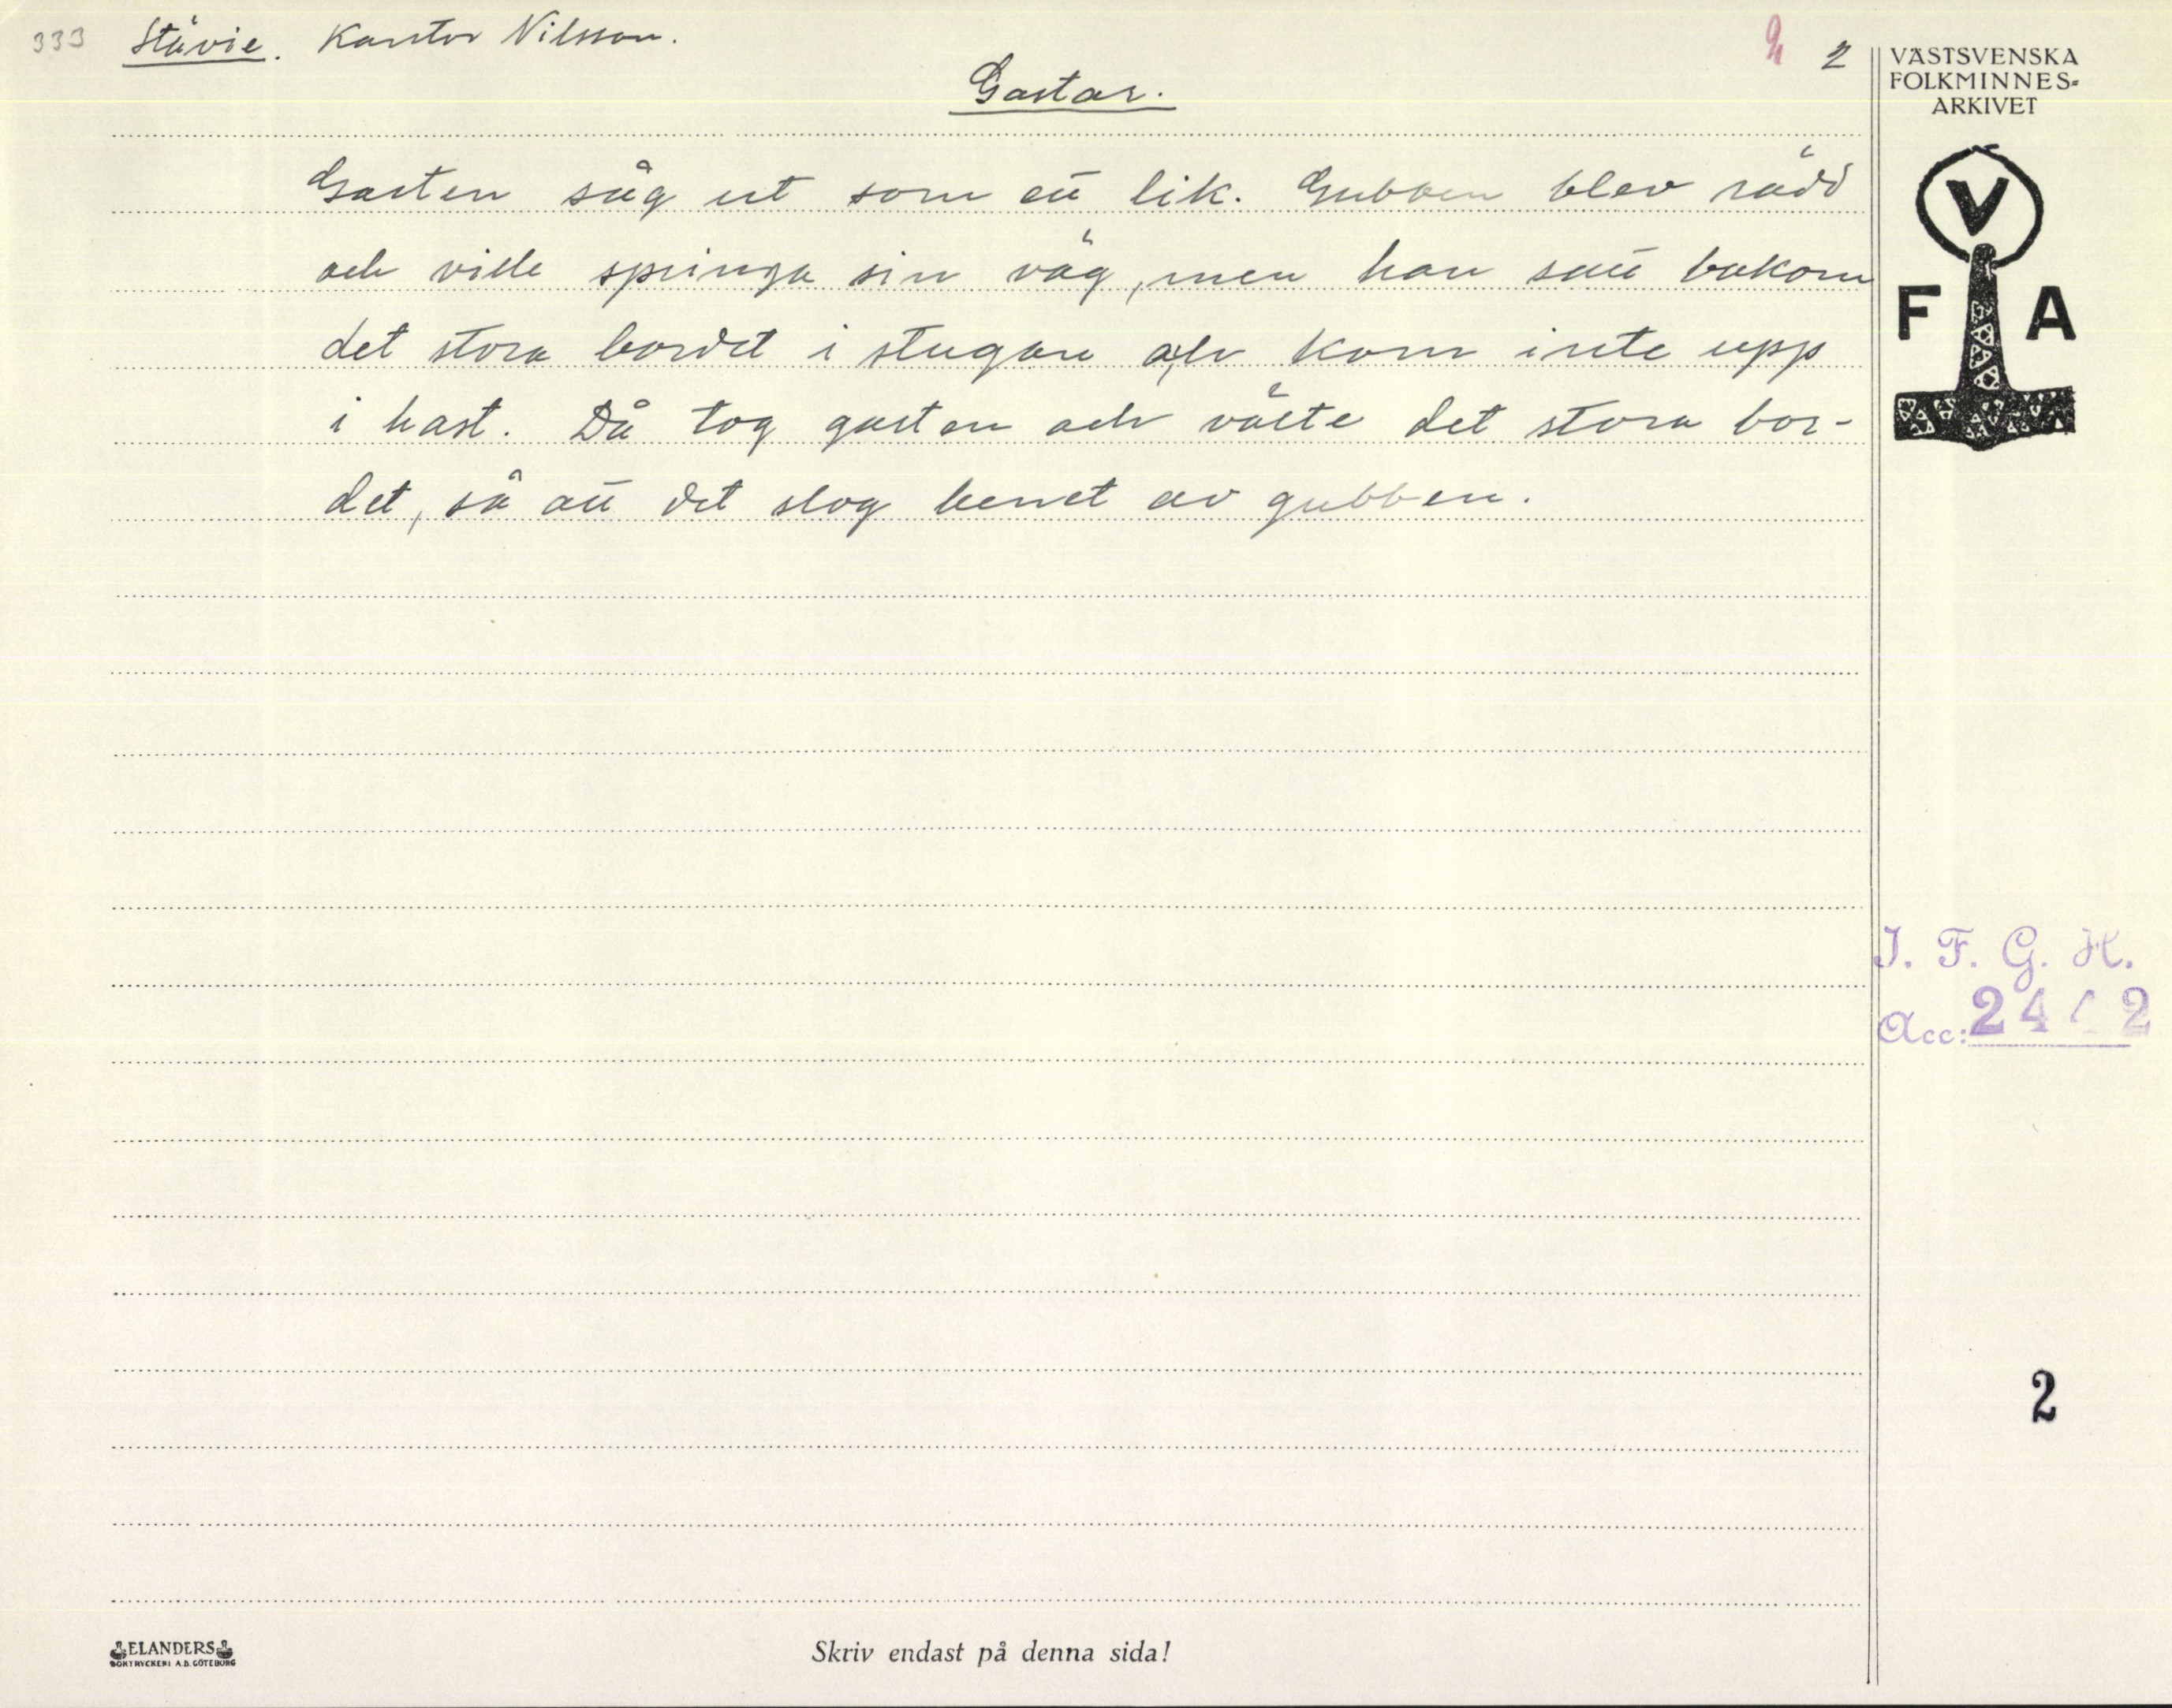 333 Stävie. Kantor Nilsson. 2
Gastar.
VÄSTSVENSKA
FOLKMINNES-
ARKIVET
Gasten såg ut som ett lik. Gubben blev rädd
och ville springa sin väg, men han satt bakom
det stora bordet i stugan och kom inte upp
i hast. Då tog gasten och välte det stora bor-
det, så att det slog benet av gubben.
V
F A
I. F. G. H.
Acc: 24 2
2
ELANDERS
BOKTRYCKERI A.B. GÖTEBORG
Skriv endast på denna sida!